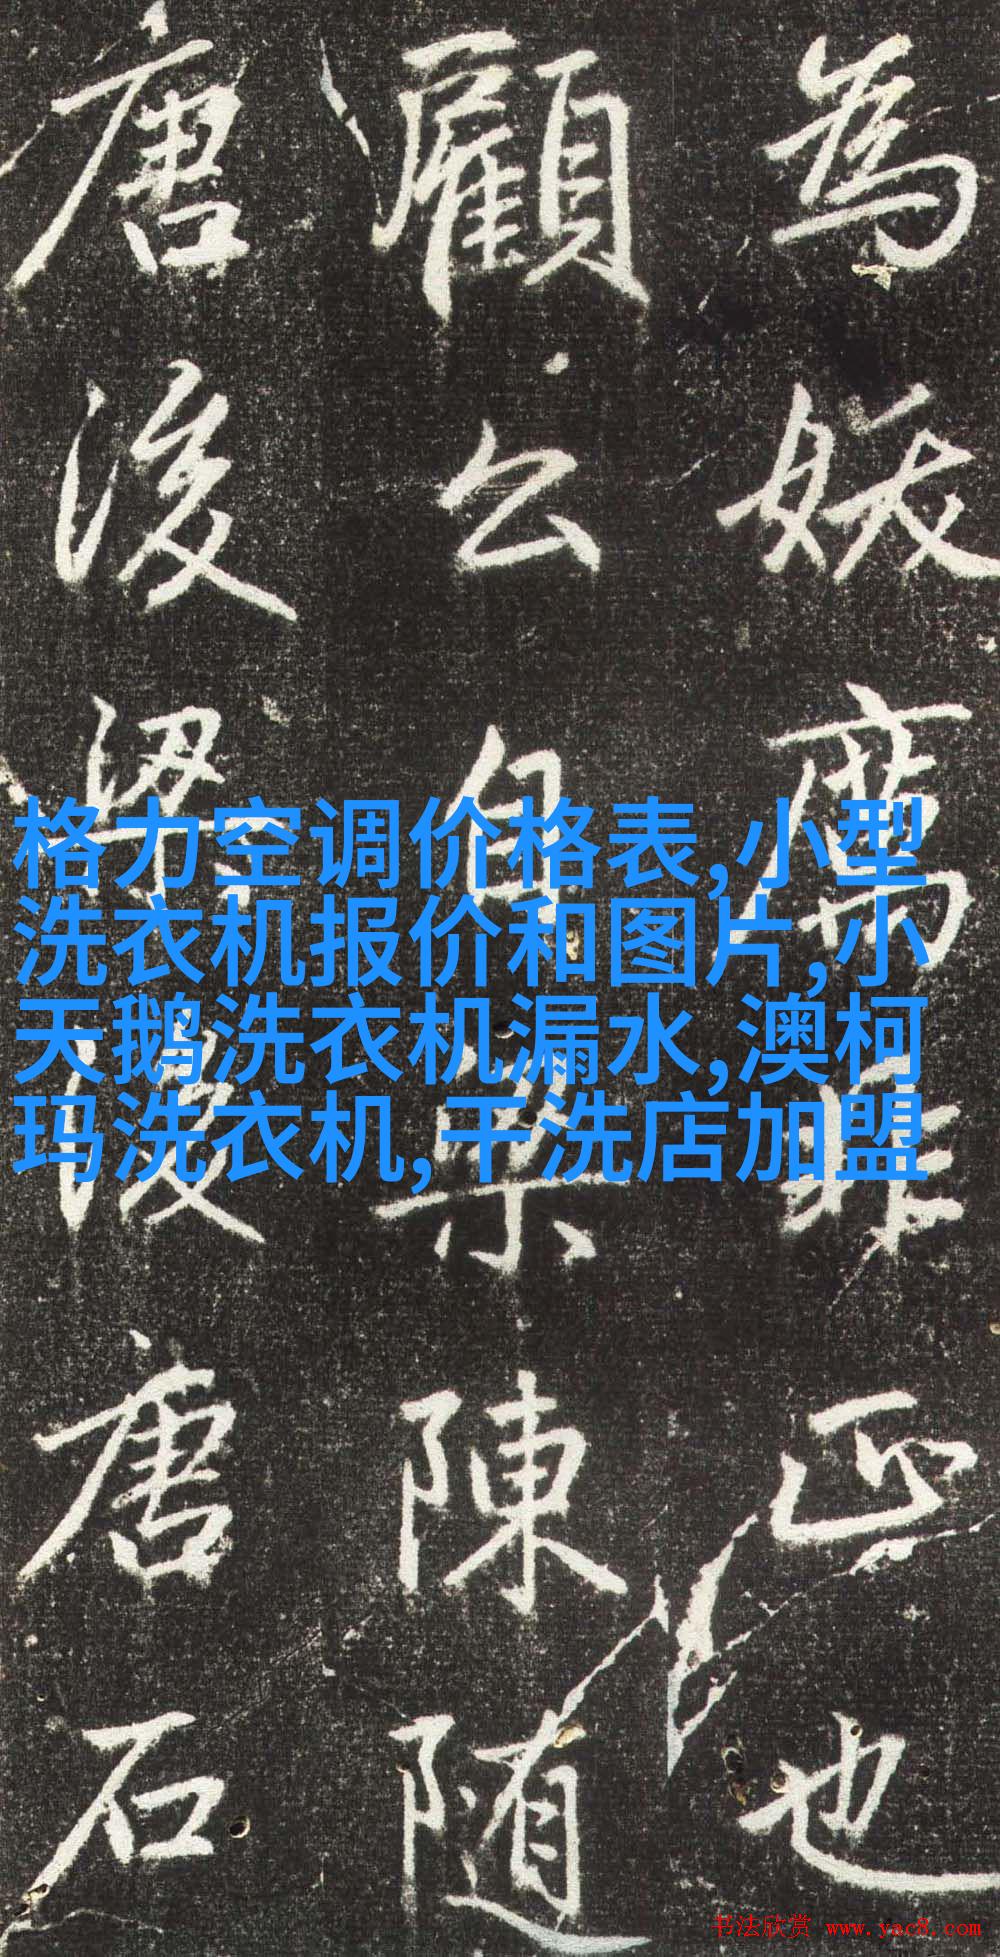 為妖非正也
顧公自梁陳隨
唐後梁後唐石
格力空调价格表,小型
洗衣机报价和图片,小
天鹅洗衣机漏水,澳柯
玛洗衣机,干洗店加盟
书法欣赏 www.yac8.com